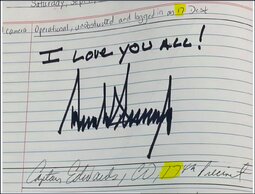 Saturday, Sept
camera Operational, unobstructed and logged in on 17 Desk
I LOVE YOU ALL!
Captain Edwards, CO, 17th Precinct